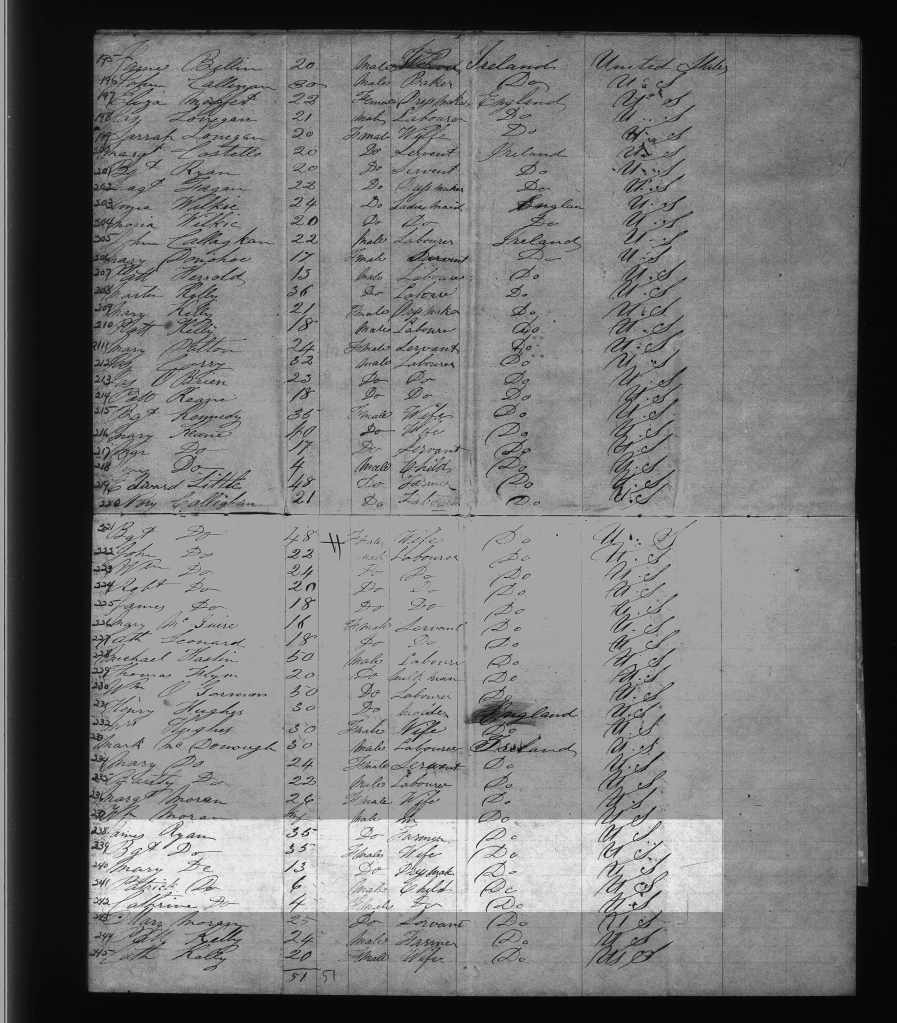 195 Bellin 20 Male Ireland United States
196 John 30 Male Baker Do U.S
197 Eliza 22 Female Dressmaker England U.S
198 Lonegan 21 Male Labourer Do U.S
199 Lonegan 20 Female Wife Do U.S
Margt Costello 20 Do Servent Ireland U.S
201 Bgt Ryan 20 Do Servent Do U.S
202 Fagan 22 Do Do U.S
203 Wilkie 24 Do Ladies Maid England U.S
204 Maria Wilkie 20 Do Do Do U.S
205 John Callaghan 22 Male Labourer Ireland U.S
206 Mary Donohoe 17 Female Servent Do U.S
207 Patt 13 Male Labourer Do U.S
208 Martin Kelly 36 Do Labourer Do U.S
209 Mary Kelly 21 Female Do U.S
210 Patt Kelly 18 Male Labourer Do U.S
211 Mary 24 Female Servant Do U.S
212 32 Male Labourer Do U.S
213 Jas O'Brien 23 Do Do Do U.S
214 Patt 18 Do Do Do U.S
215 Bgt Kennedy 35 Female Wife Do U.S
216 Mary Keane 40 Do Wife Do U.S
217 Do 17 Do Servant Do U.S
218 Do 4 Male Child Do U.S
219 Edward Little 48 Do Farmer Do U.S
220 21 Do Labourer Do U.S
221 Bgt Do 48 Female Wife Do U.S
222 John Do 22 Male Labourer Do U.S
223 Wm Do 24 Do Do Do U.S
224 Robt Do 20 Do Do Do U.S
225 James Do 18 Do Do Do U.S
226 Mary McGuire 16 Female Servant Do U.S
227 Cath Leonard 18 Do Do Do U.S
228 Michael 50 Male Labourer Do U.S
229 Thomas Flynn 20 Do Do U.S
230 Wm O'Gorman 30 Do Labourer Do U.S
231 Henry Hughes 30 Do England U.S
232 Mrs Hughes 30 Female Wife Do U.S
233 Mark McDonough 30 Male Labourer Ireland U.S
234 Mary Do 24 Female Servant Do U.S
235 Do 22 Male Labourer Do U.S
236 Margt Moran 26 Female Wife Do U.S
237 Moran Male Do U.S
238 James Ryan 35 Do Farmer Do U.S
239 Bgt Do 35 Female Wife Do U.S
240 Mary Do 13 Do Do U.S
241 Patrick Do 6 Male Child Do U.S
242 Cathrine Do 4 Female Do Do U.S
243 Mary Moran 25 Do Servant Do U.S
244 Patt Kelly 24 Male Farmer Do U.S
245 Cath Kelly 20 Female Wife Do U.S
51 51